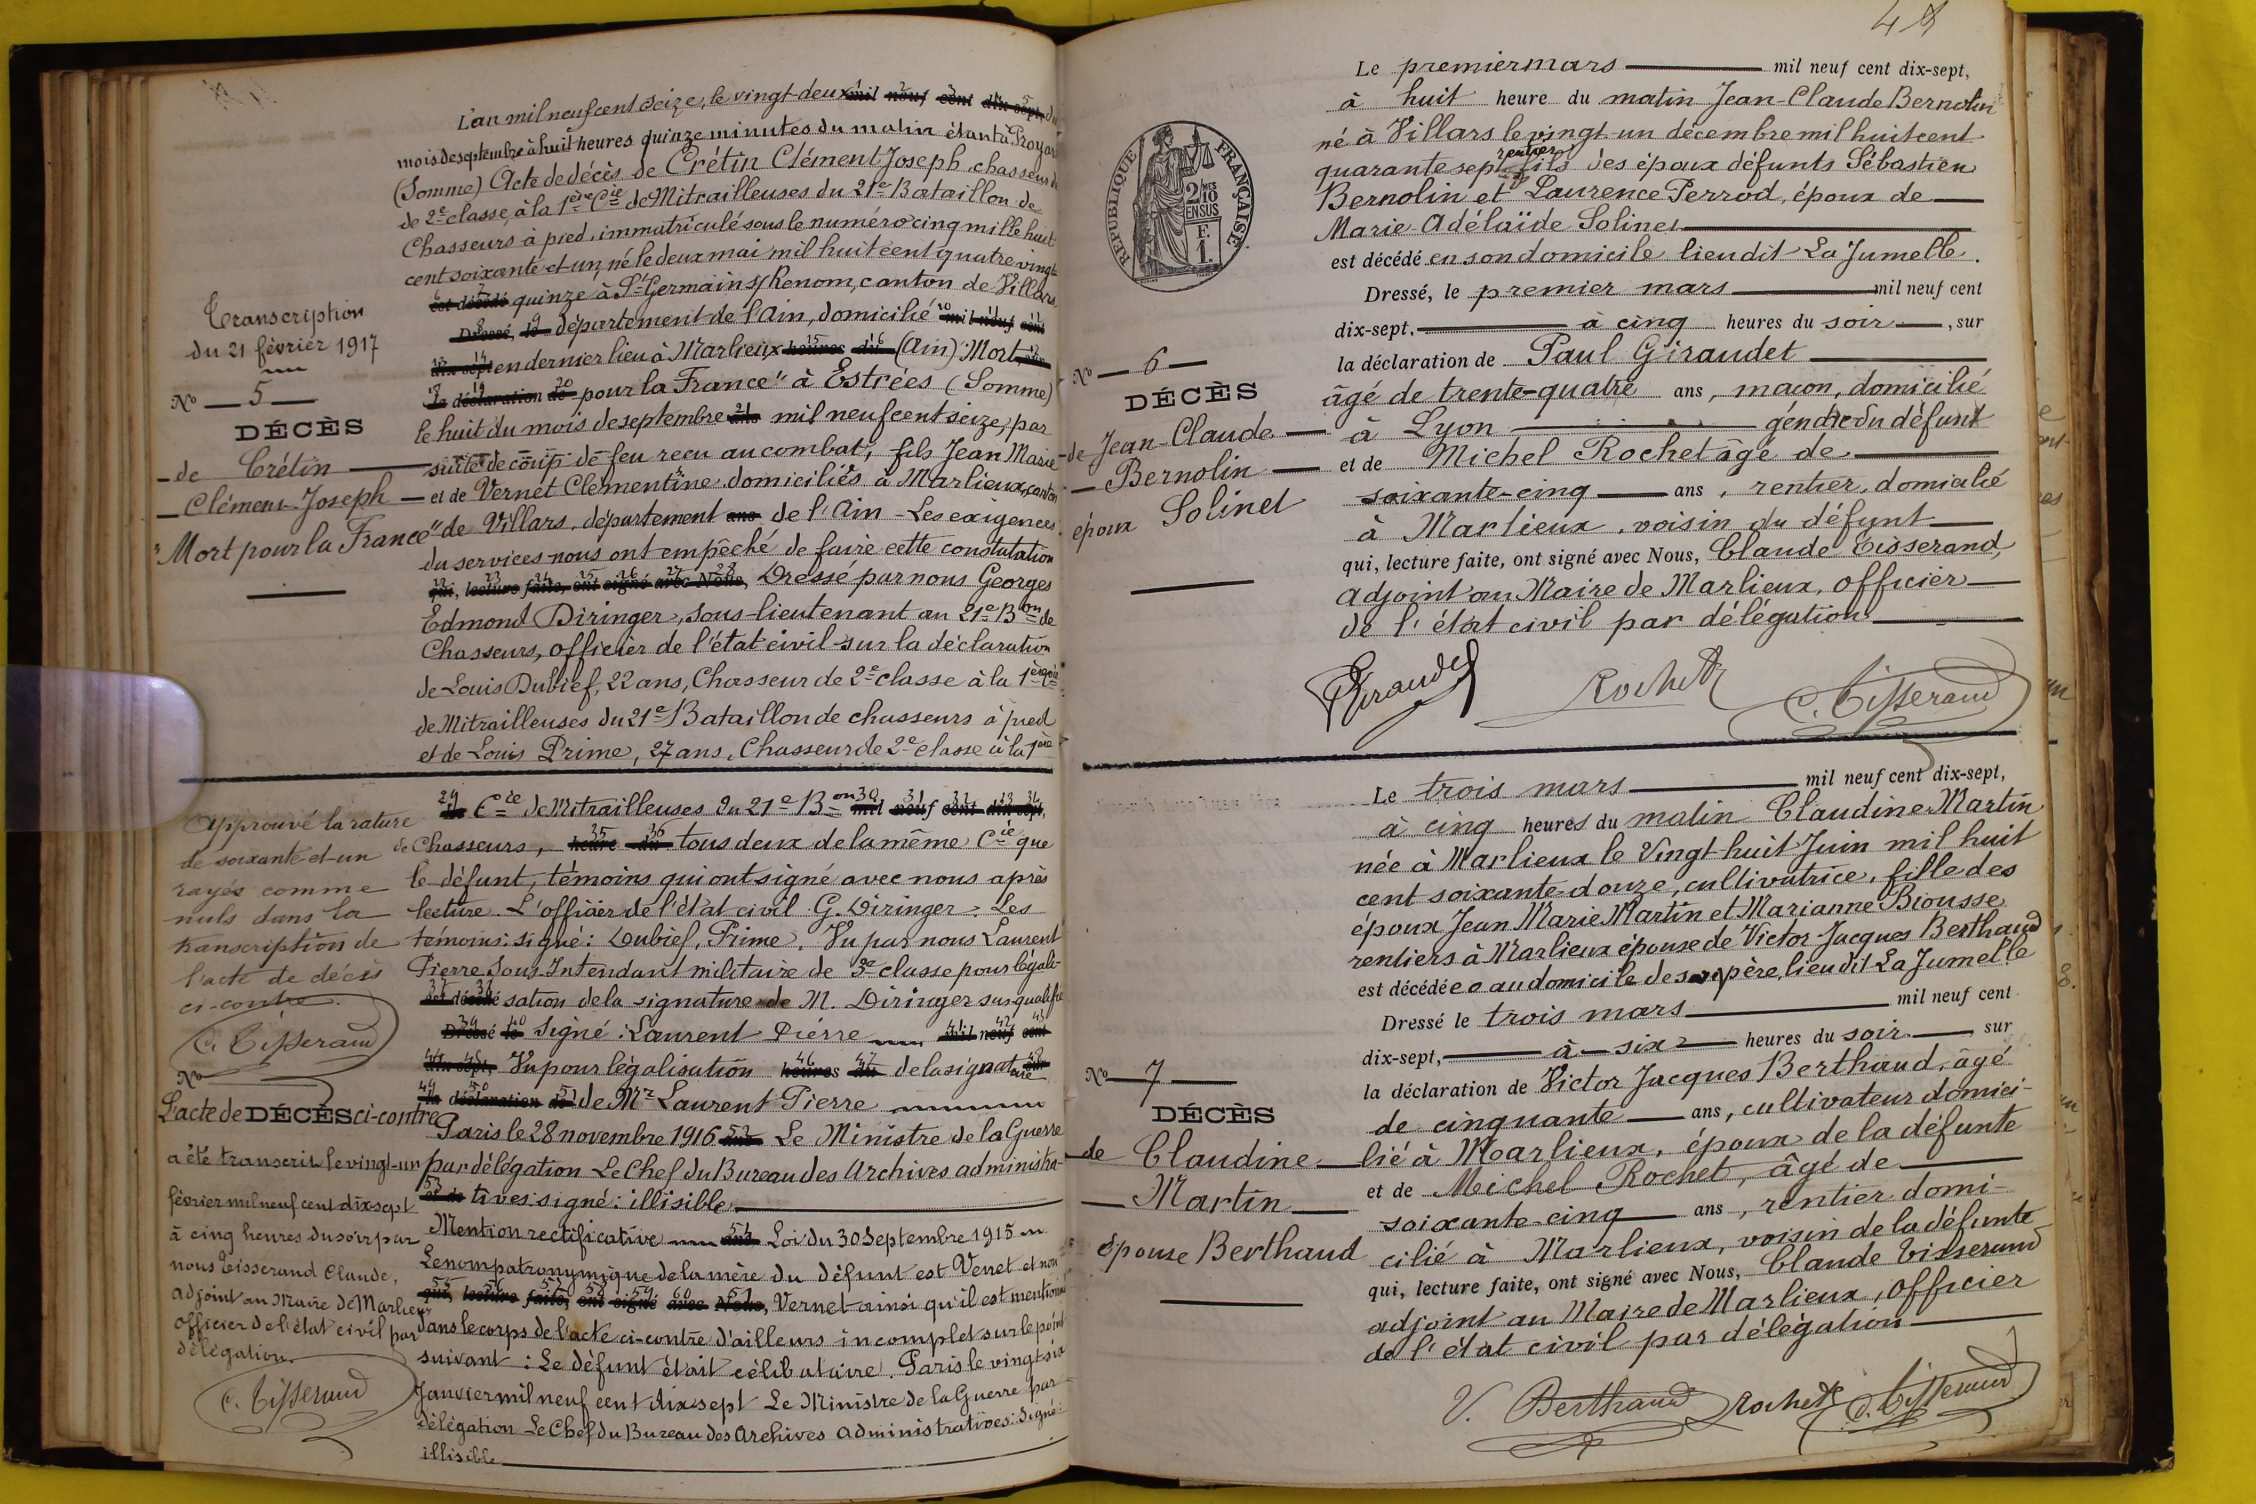 Transcription
du 21 février 1917
No 5
DÉCÈS
de Crétin
Clément Joseph
"Mort pour la France"
L'an mil neuf cent seize, le vingt-deux mil neuf cent dix-sept, du
mois de septembre à huit heures quinze minutes du matin étant à Proyart
(Somme) Acte de décès de Crétin Clément Joseph, chasseur
de 2e classe, à la 1ère Cie de Mitrailleuses du 21e Bataillon de
Chasseurs à pied, immatriculé sous le numéro cinq mille huit
cent soixante et un, né le deux mai mil huit cent quatre vingt
est décédé quinze à St Germain s/Renom, canton de Villars
Dressé, le département de l'Ain, domicilié mil neuf cent
dix-sept en dernier lieu à Marlieux heures du (Ain) "Mort, sur
la déclaration de pour la France" à Estrées (Somme)
le huit du mois de septembre ans mil neuf cent seize, par
suite de coup de feu reçu au combat, fils Jean Marie
et de Vernet Clémentine domiciliés à Marlieux, canton
de Villars, département ans de l'Ain - Les exigences
du services nous ont empêché de faire cette constatation
qui, lecture faite, ont signé avec Nous, Dressé par nous Georges
Edmond Diringer, sous-lieutenant au 21e Bon de
Chasseurs, officier de l'état civil sur la déclaration
de Louis Dubief, 22 ans, Chasseur de 2e classe à la 1ère Cie
de Mitrailleuses du 21e Bataillon de chasseurs à pied
et de Louis Prime, 27 ans, Chasseur de 2e classe à la 1ère
Approuvé la rature
de soixante-et-un
rayés comme
nuls dans la
transcription de
l'acte de décès
ci-contre.
C. Tisserand
No
L'acte de DÉCÈS ci-contre
a été transcrit le vingt-un
février mil neuf cent dix-sept
à cinq heures du soir par
nous Tisserand Claude,
adjoint au Maire de Marlieux
officier de l'état civil par
délégation.
C. Tisserand
Le Cie de Mitrailleuses du 21e Bon mil neuf cent dix-sept,
de Chasseurs, heure du tous deux de la même Cie que
le défunt, témoins qui ont signé avec nous après
lecture. L'officier de l'état civil G. Diringer. Les
témoins: signé: Dubief, Prime. Vu par nous Laurent
Pierre, Sous-Intendant militaire de 3e classe pour légali-
est décédé sation de la signature de M. Diringer sus-qualifié
Dressé le Signé: Laurent Pierre mil neuf cent
dix-sept, Vu pour légalisation heures du de la signature sur
la déclaration de de Mr Laurent Pierre
Paris le 28 novembre 1916 ans Le Ministre de la Guerre
par délégation Le Chef du Bureau des Archives administra-
et de tives signé: illisible
Mention rectificative ans Loi du 30 Septembre 1915
Le nom patronymique de la mère du défunt est Verret et non
qui, lecture faite, ont signé avec Nous, Vernet ainsi qu'il est mentionné
dans le corps de l'acte ci-contre d'ailleurs incomplet sur le point
suivant: Le défunt était célibataire. Paris le vingt-six
Janvier mil neuf cent dix-sept Le Ministre de la Guerre par
délégation Le Chef du Bureau des Archives administratives: Signé:
illisible
RÉPUBLIQUE FRANÇAISE
2/10
EN SUS
F.
1.
No 6
DÉCÈS
de Jean-Claude
Bernolin
époux Solinet
Le premier mars mil neuf cent dix-sept,
à huit heure du matin Jean-Claude Bernolin
né à Villars le vingt-un décembre mil huit cent
rentier
quarante sept fils des époux défunts Sébastien
Bernolin et Laurence Perrod, époux de
Marie-Adélaïde Solinet
est décédé en son domicile lieu dit La Jumelle.
Dressé, le premier mars mil neuf cent
dix-sept, à cinq heures du soir, sur
la déclaration de Paul Giraudet
âgé de trente-quatre ans, maçon, domicilié
à Lyon gendre du défunt
et de Michel Rochet âgé de
soixante-cinq ans, rentier, domicilié
à Marlieux, voisin du défunt
qui, lecture faite, ont signé avec Nous, Claude Tisserand,
adjoint au Maire de Marlieux, officier
de l'état civil par délégation
Giraudet Rochet C. Tisserand
No 7
DÉCÈS
de Claudine
Martin
épouse Berthaud
Le trois mars mil neuf cent dix-sept,
à cinq heures du matin Claudine Martin
née à Marlieux le Vingt-huit Juin mil huit
cent soixante-douze, cultivatrice, fille des
époux Jean Marie Martin et Marianne Biousse
rentiers à Marlieux épouse de Victor Jacques Berthaud
est décédée au domicile de son père, lieu dit La Jumelle
Dressé le trois mars mil neuf cent
dix-sept, à six heures du soir sur
la déclaration de Victor Jacques Berthaud, âgé
de cinquante ans, cultivateur domici-
lié à Marlieux, époux de la défunte
et de Michel Rochet, âgé de
soixante-cinq ans, rentier domi-
cilié à Marlieux, voisin de la défunte
qui, lecture faite, ont signé avec Nous, Claude Tisserand
adjoint au Maire de Marlieux, officier
de l'état civil par délégation
V. Berthaud Rochet C. Tisserand